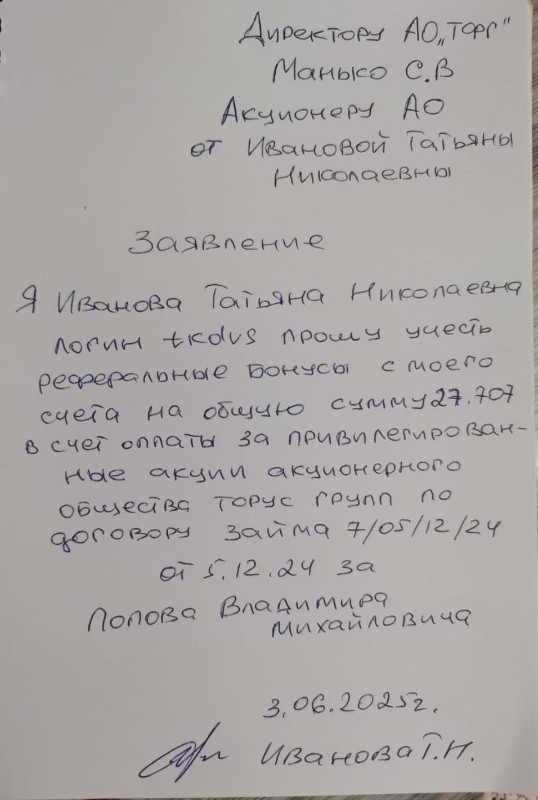 Директору АО„Торг"
Манько С.В
Акционеру АО
от Ивановой Татьяны
Николаевны
Заявление
Я Иванова Татьяна Николаевна
логин tkdvs прошу учесть
реферальные бонусы с моего
счета на общую сумму 27.707
в счет оплаты за привилегирован-
ные акции акционерного
общества торус групп по
договору займа 7/05/12/24
от 5.12.24 за
Попова Владимира
Михайловича
3.06.2025г.
Иванова Т.Н.